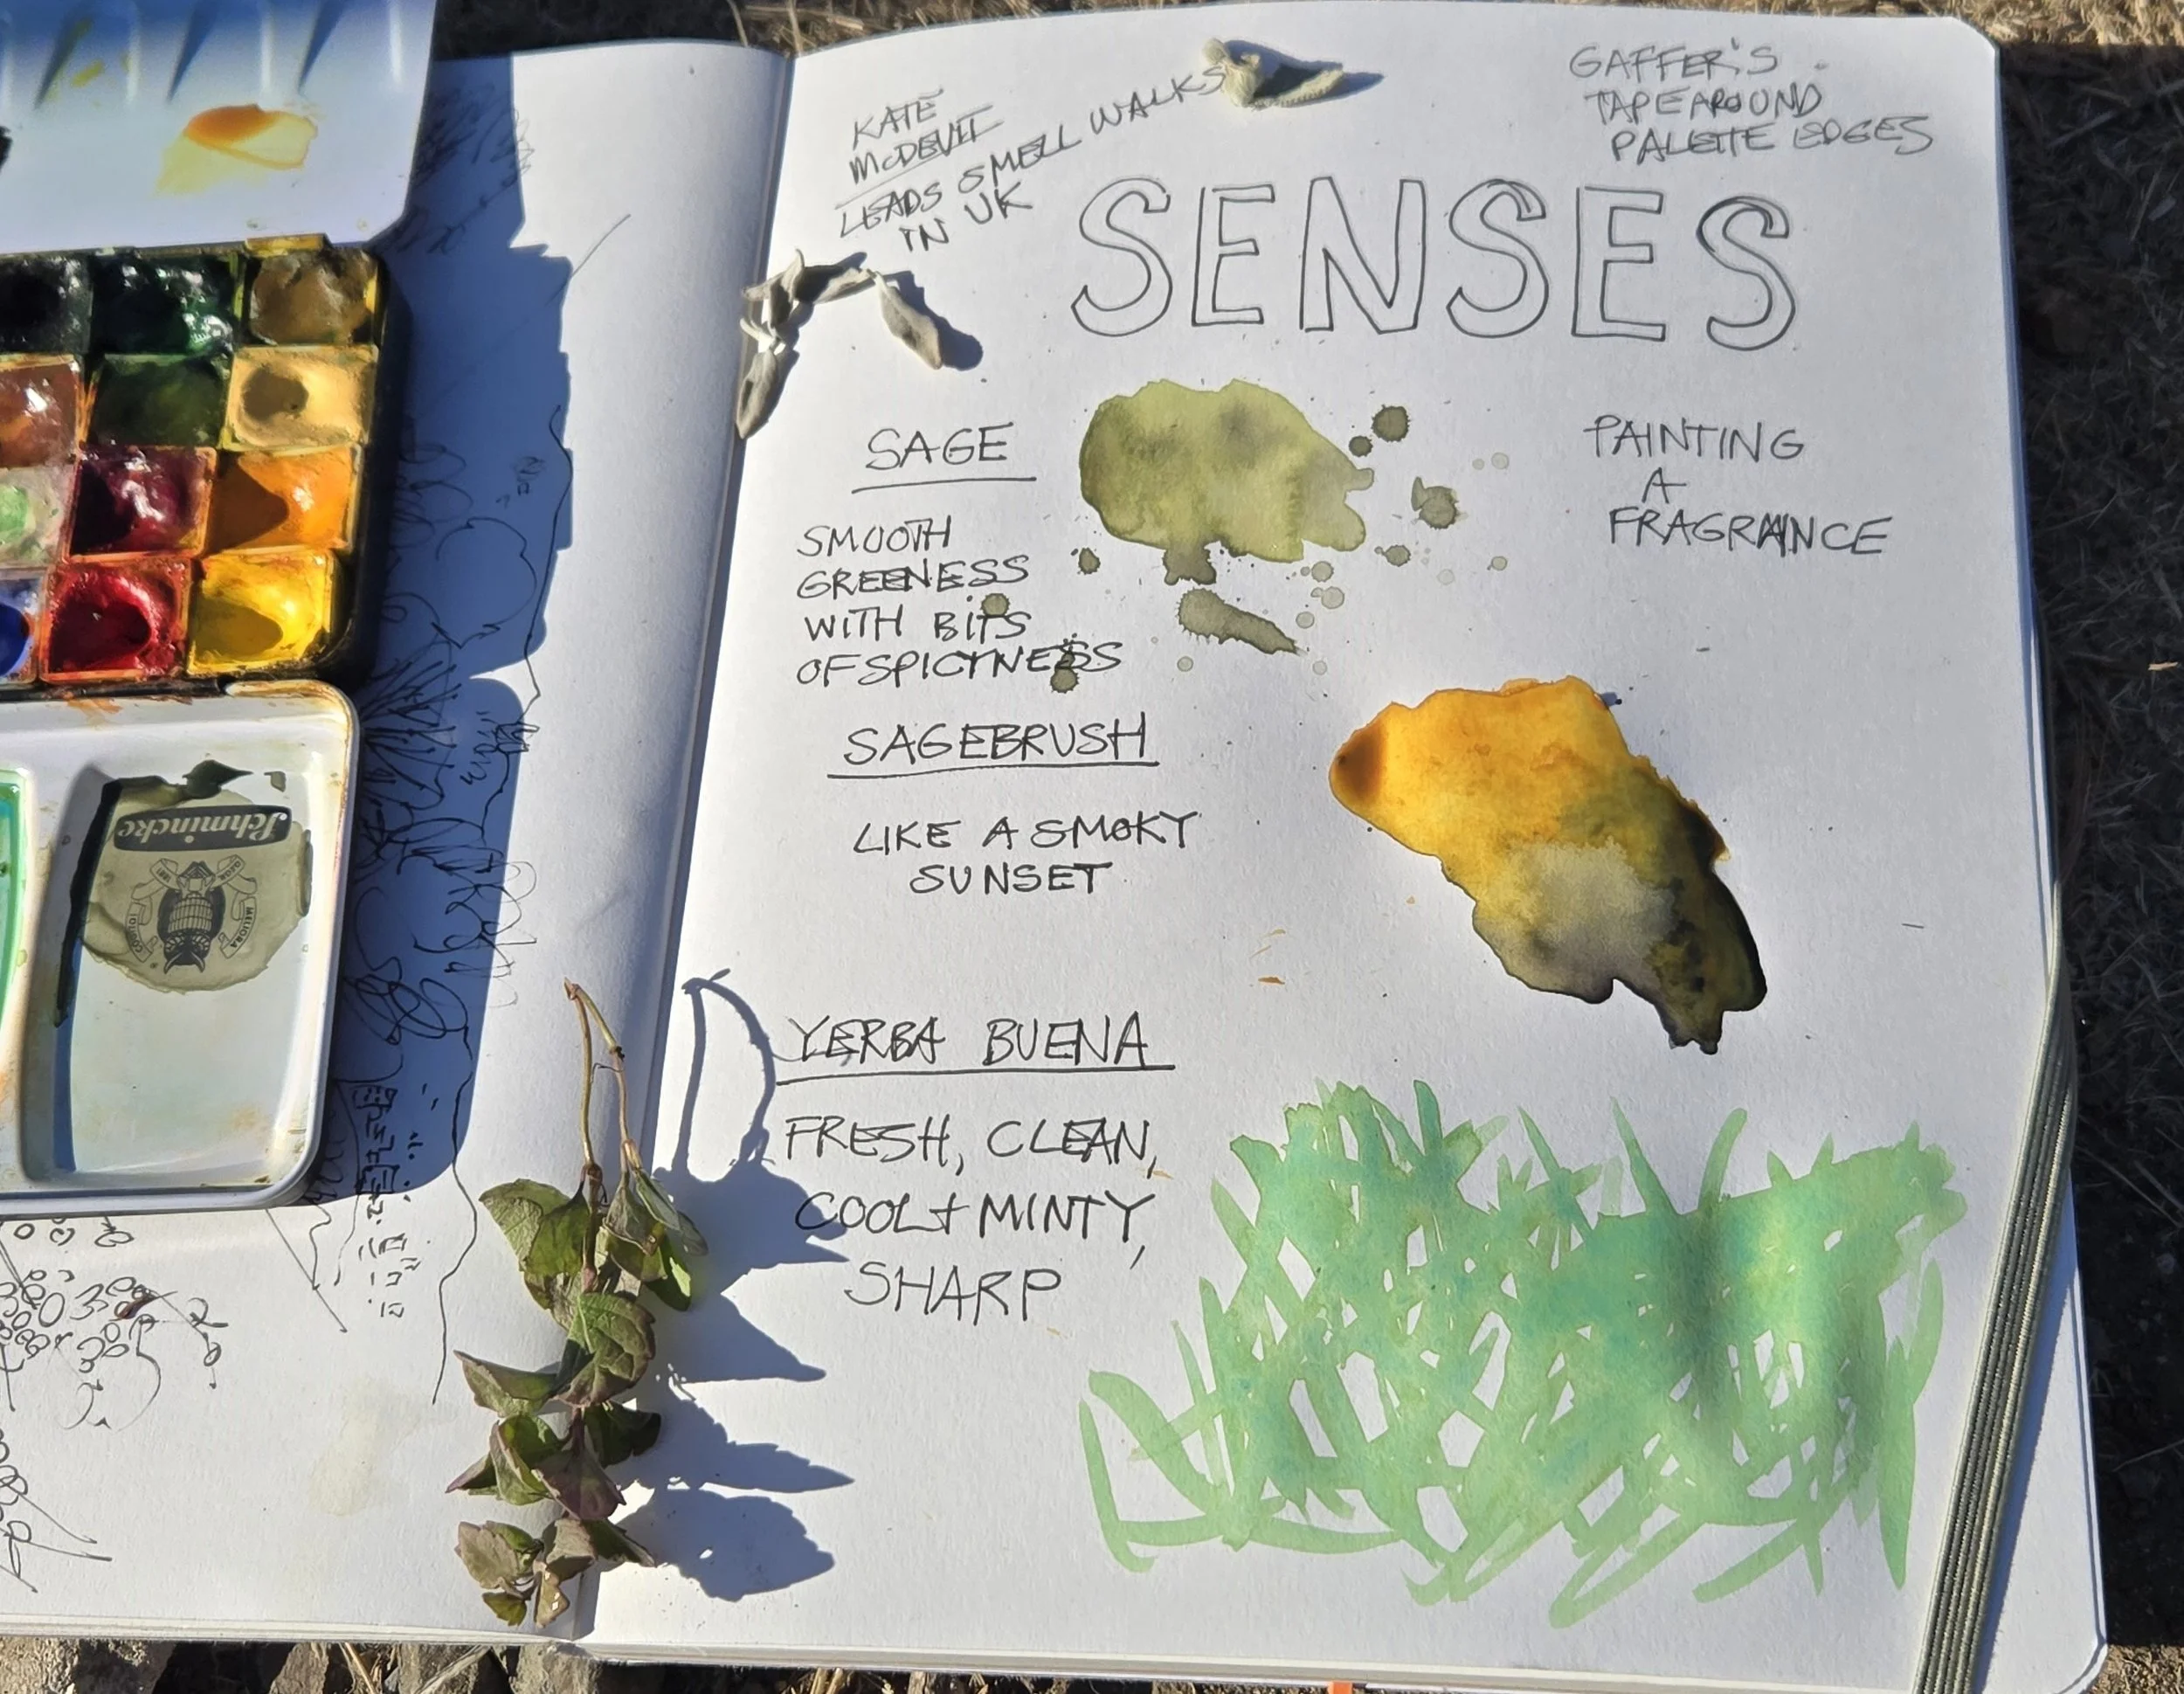 KATE
McDEVIT
LEADS SMELL WALKS
IN UK
GAFFER'S
TAPE AROUND
PALETTE EDGES
SENSES
SAGE
SMOOTH
GREENESS
WITH BITS
OF SPICYNESS
PAINTING
A
FRAGRANCE
SAGEBRUSH
LIKE A SMOKY
SUNSET
YERBA BUENA
FRESH, CLEAN,
COOL + MINTY,
SHARP
Schmincke
MELIORA